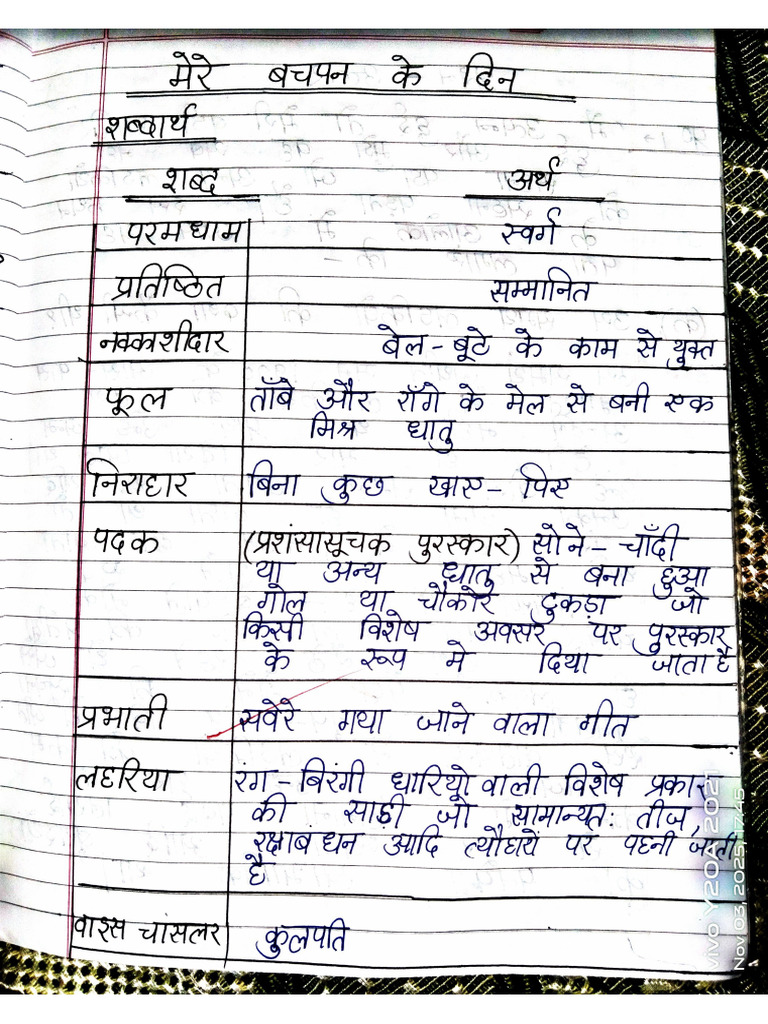 मेरे बचपन के दिन
शब्दार्थ
शब्द अर्थ
परमधाम स्वर्ग
प्रतिष्ठित सम्मानित
नक्काशीदार बेल-बूटे के काम से युक्त
फूल ताँबे और राँगे के मेल से बनी एक
मिश्र धातु
निराहार बिना कुछ खाए-पिए
पदक (प्रशंसासूचक पुरस्कार) सोने-चाँदी
या अन्य धातु से बना हुआ
गोल या चौकोर टुकड़ा जो
किसी विशेष अवसर पर पुरस्कार
के रूप मे दिया जाता है
प्रभाती सवेरे गया जाने वाला गीत
लहरिया रंग-बिरंगी धारियो वाली विशेष प्रकार
की साड़ी जो सामान्यत: तीज,
रक्षाबंधन आदि त्यौहारों पर पहनी जाती
है
वाइस चांसलर कुलपति
vivo Y20A 2021
Nov 03, 2025, 17:45